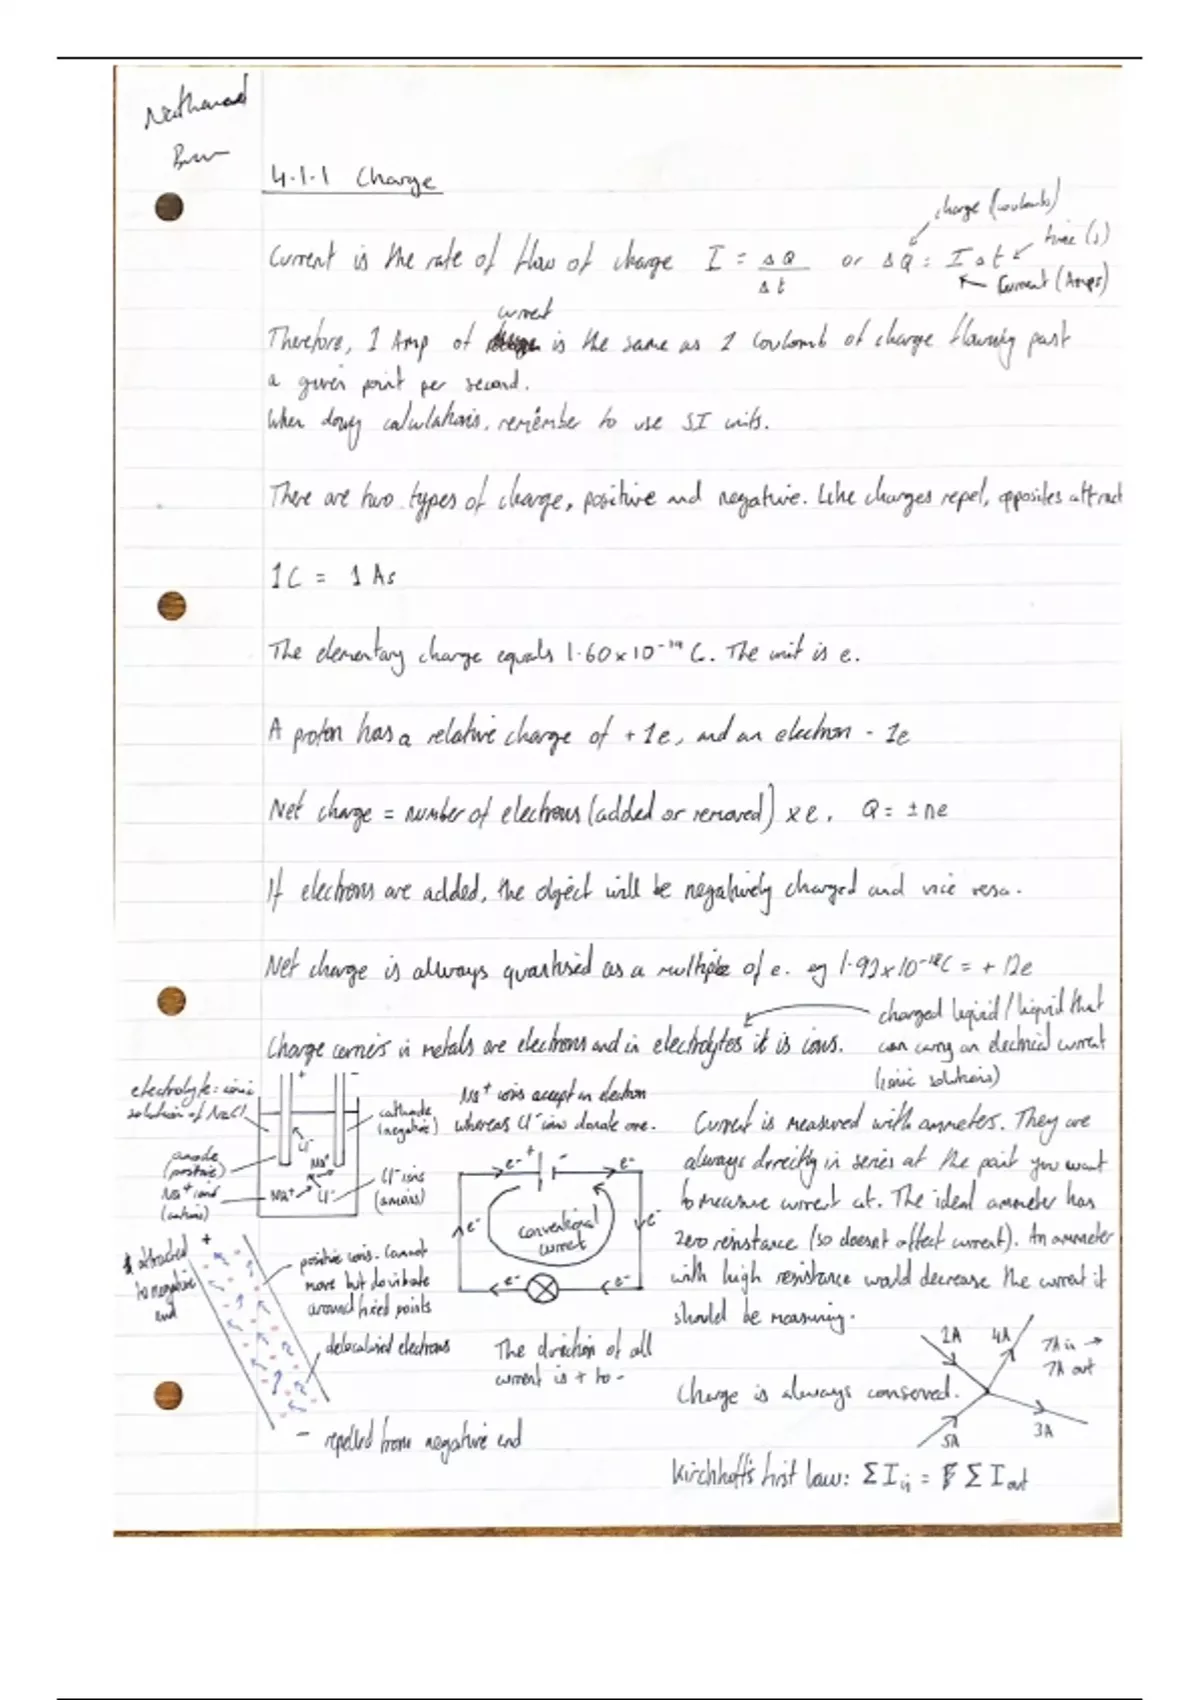 Nathanael
4.1.1 Charge
charge (coulombs)
time (s)
Current is the rate of flow of charge I = ΔQ / Δt or ΔQ = IΔt
Current (Amps)
current
Therefore, 1 Amp of is the same as 1 Coulomb of charge flowing past
a given point per second.
When doing calculations, remember to use SI units.
There are two types of charge, positive and negative. Like charges repel, opposites attract
1C = 1 As
The elementary charge equals 1.60 x 10⁻¹⁹ C. The unit is e.
A proton has a relative charge of +1e, and an electron -1e
Net charge = number of electrons (added or removed) x e. Q = ±ne
If electrons are added, the object will be negatively charged and vice versa.
Net charge is always quantised as a multiple of e. eg 1.92 x 10⁻¹⁸C = + 12e
charged liquid / liquid that
can carry an electrical current
(ionic solutions)
Charge carriers in metals are electrons and in electrolytes it is ions.
electrolyte: ionic
solution of NaCl
+ -
cathode
(negative)
anode
(positive)
Na⁺ ions
(cations)
Cl⁻
Na⁺
Na⁺
Cl⁻
Cl⁻ ions
(anions)
Na⁺ ions accept an electron
whereas Cl⁻ ions donate one.
e⁻ + - e⁻
e⁻
conventional
current
e⁻
e⁻ e⁻
The direction of all
current is + to -
attracted
to negative
end
+
positive ions. Cannot
move but do vibrate
around fixed points
delocalised electrons
- repelled from negative end
Current is measured with ammeters. They are
always directly in series at the point you want
to measure current at. The ideal ammeter has
zero resistance (so doesnt affect current). An ammeter
with high resistance would decrease the current it
should be measuring.
2A 4A
7A in →
7A out
Charge is always conserved.
5A 3A
Kirchhoff's first law: ΣI in = ΣI out